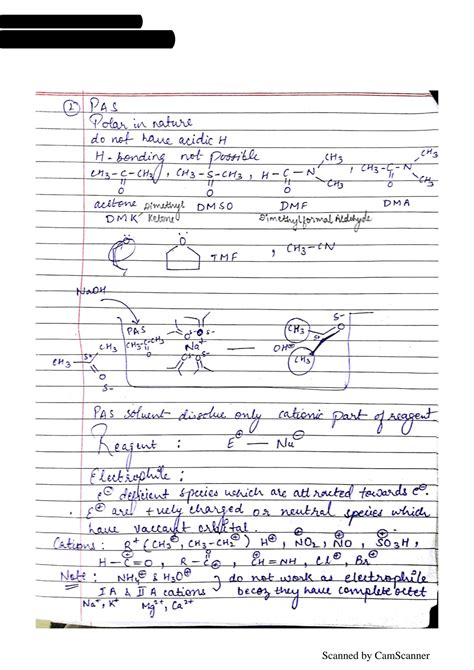 ② PAS
Polar in nature
do not have acidic H
H-bonding not possible
CH₃-C-CH₃, CH₃-S-CH₃, H-C-N CH₃ CH₃, CH₃-C-N CH₃ CH₃
O O O O
acetone Dimethyl DMSO DMF DMA
DMK Ketone Dimethylformal Aldehyde
O O TMF , CH₃-CN
NaOH
PAS
CH₃-C-CH₃
O
Na⁺
OH⊖
CH₃ CH₃ O S-
CH₃ CH₃ S+ O S-
PAS solvent dissolve only cationic part of reagent
Reagent : E⊕ — Nu⊖
Electrophile :
e⊖ deficient species which are attracted towards e⊖.
• E⊕ are +vely charged or neutral species which
have vaccant orbital.
Cations : R⁺ (CH₃⊕, CH₃-CH₂⊕) H⊕, NO₂⊕, NO⊕, SO₃H⊕,
H-C⊕=O, R-C⊕=O, CH⊕=NH, Cl⊕, Br⊕
Note : NH₄⊕ & H₃O⊕ } do not work as electrophile
IA & IIA cations } becoz they have complete octet
Na⁺, K⁺ Mg²⁺, Ca²⁺
Scanned by CamScanner